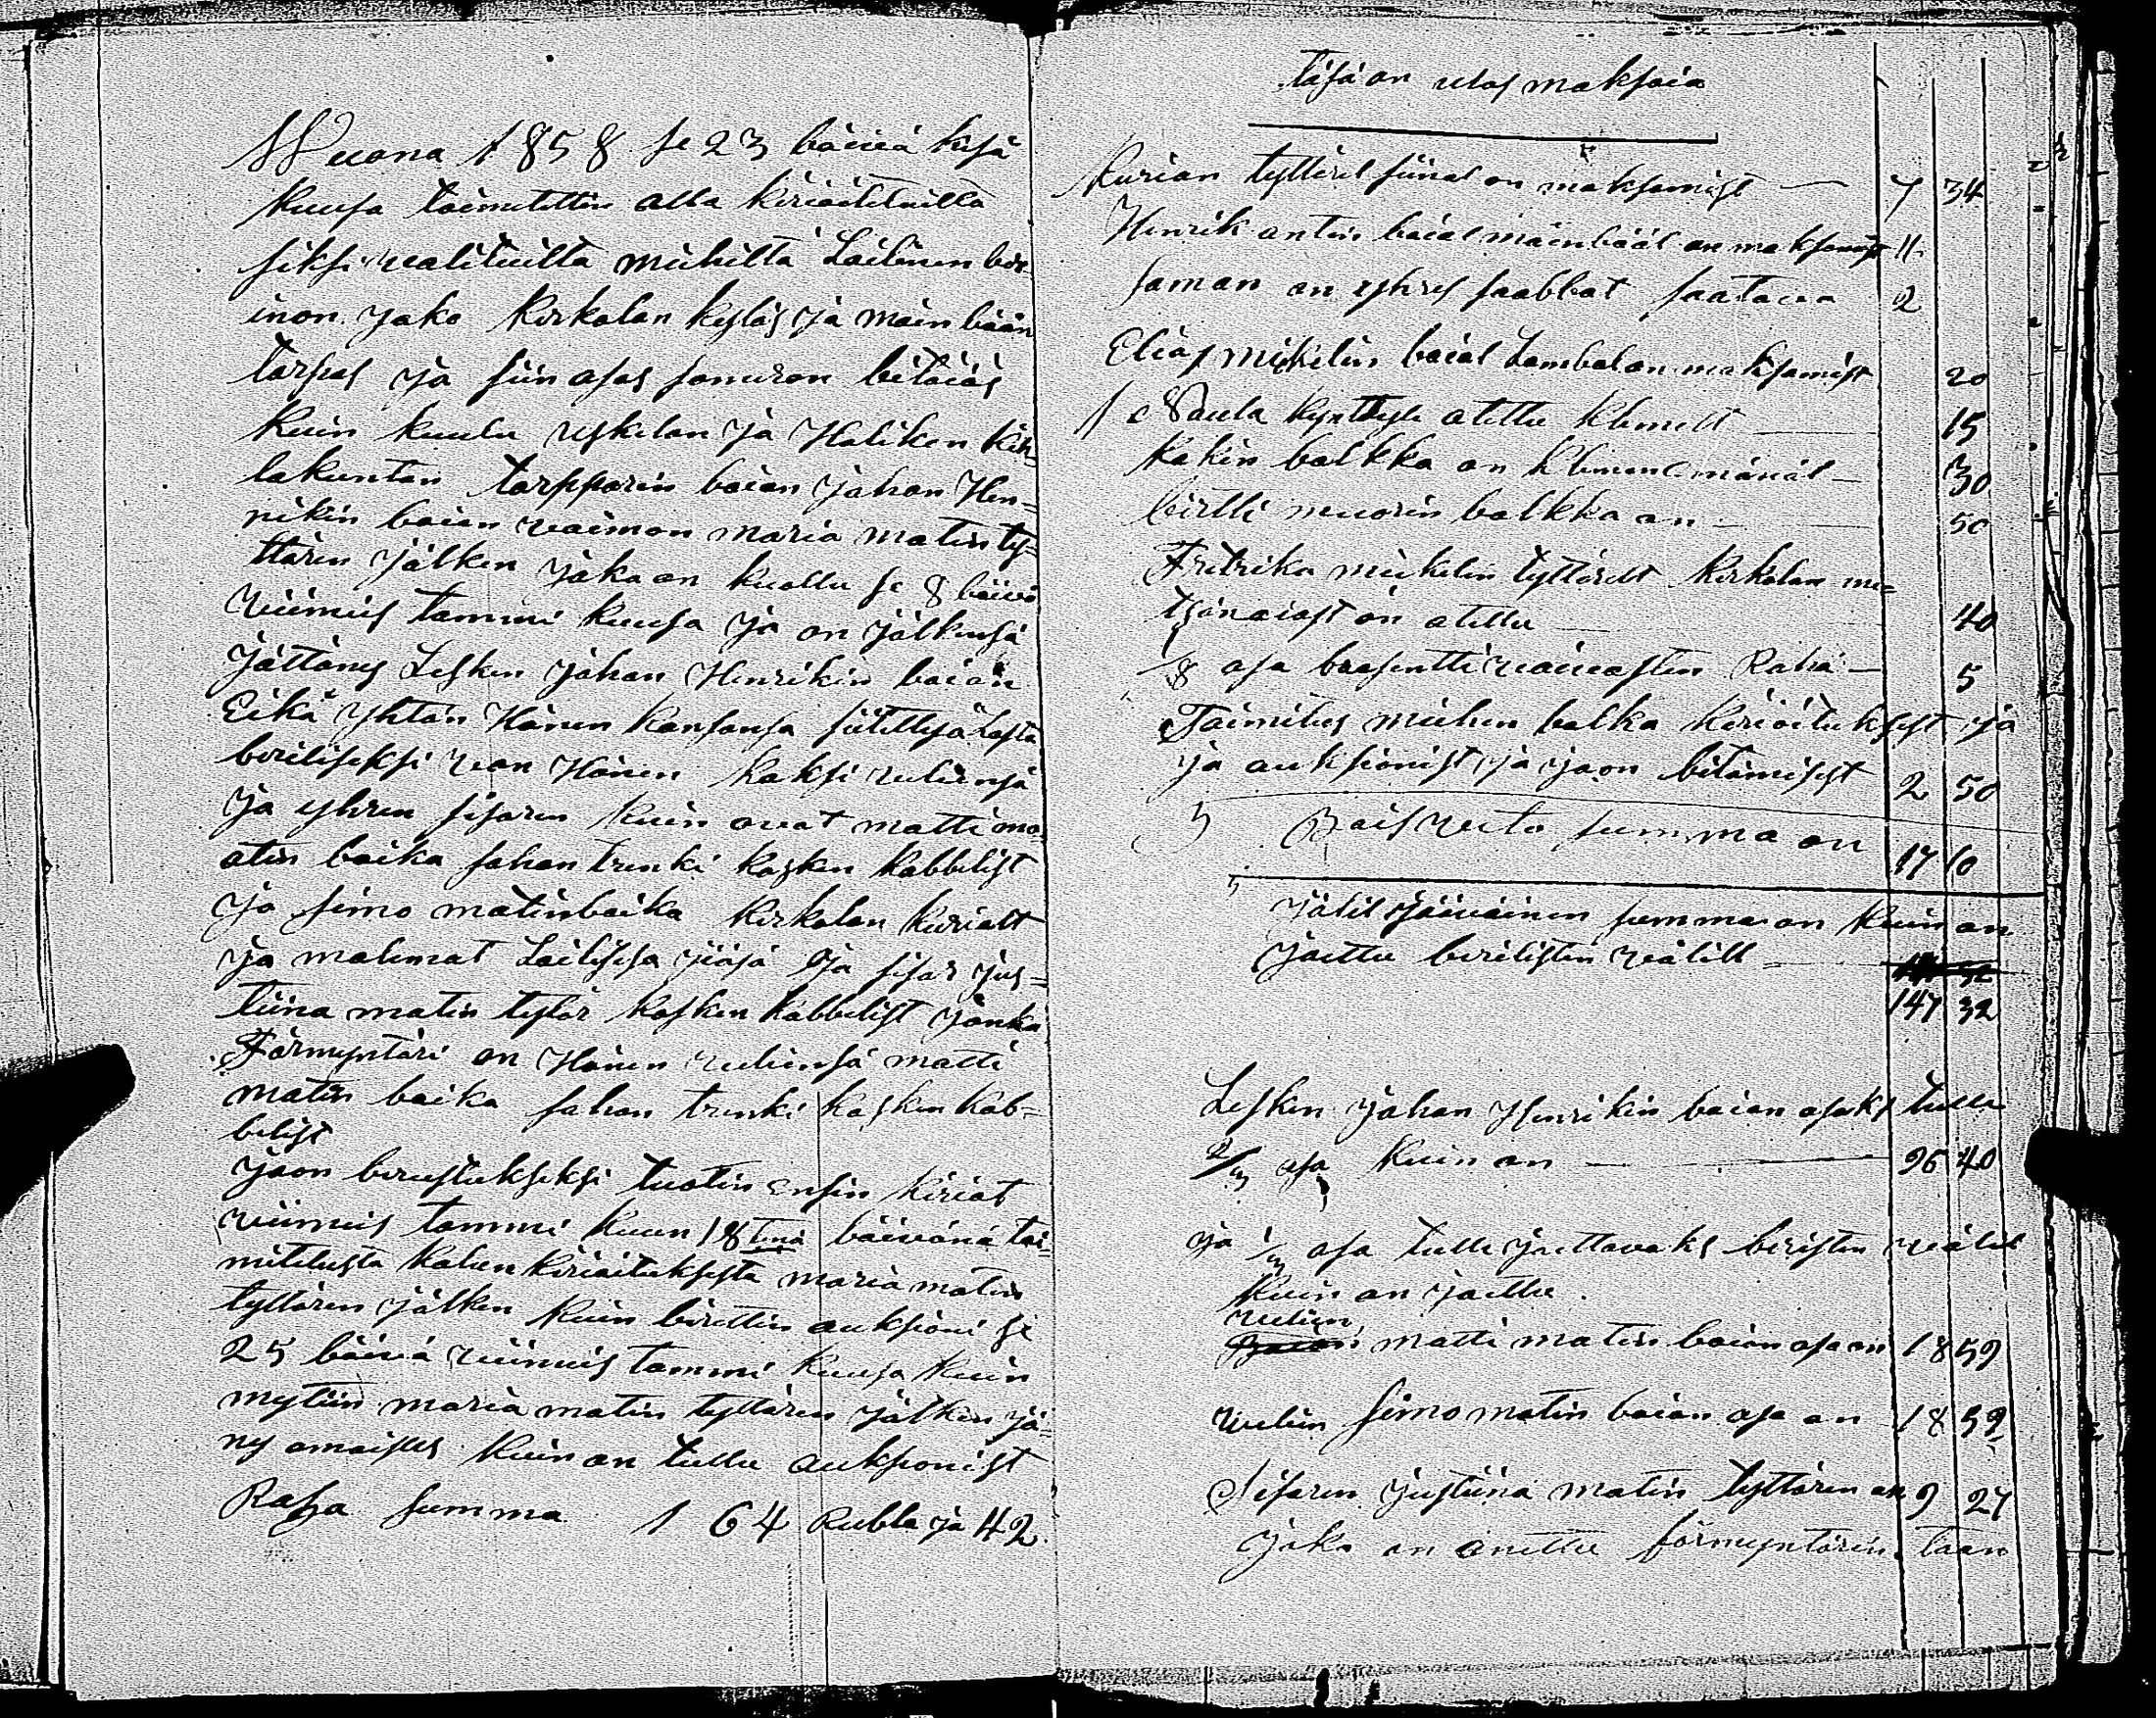 Wuona 1858 se 23 bäivä kesä
kuusa toimitettin alla kirioitetuilla
siksi valituilta miehiltä Laelinen ber
inön jako Kirkolan kyläs ja mäen bään
torpas ja siin asas samuron bitäiäs
kuin kuulu uskelan ja Halikon kih-
lakuntan torpparin boian Johan Hen=
rikin boian vaimon maria matin ty=
ttären jälken joka on kuollu se 8 bäivä
viimeis tammi kuusa ja on jälkensä
jättänys Lesken Johan Henrikin boian
Eikä yhtän Hänen kansansa siitettyä Lasta
beriliseksi van Hänen kaksi veliensä
ja yhren sisaren kuin ovat matti ma
atin boika sahan trenki kosken kabbelist
ja simo matinboika kirkolan kurialt
ja molemat Läilisesä jiäsä ja sisar jus=
tiina matin tytär kosken kabbelist jonka
Förmyntäri on Hänen veliensä matti
matin boika sahan trenki kosken kab=
belist
jaon berustukseksi tuotin ensin kiriat
viimeis tammi kuun 18 tena bäivänä toi=
mitetusta kalun kirioituksesta maria matin
tyttären jälken kuin birettin auksioni se
25 bäivä viimeis tammi kuusa kuin
mytiin maria matin tyttären jälken jä=
ny omaisus kuin on tullu auksionist
Raha summa 164 Rubla ja 42
täsä on ulos maksoia
Kurian tyttärel siinal on maksamist — 7 34
Henrik antin boial mäenbääl on maksamist 11
saman on yhres saabbat saatava 2
Elias mikelin boial Lambol on maksamist 20
1 Naula kynttilä otettu Klemelt 15
kokin balkka on Klemen emänäl — 30
birtti muorin balkka on — 50
Fretrika miekelin tyttärelt kirkolan me=
tsänaiast on otettu — 40
1/8 osa brosentti vaivasten Raha — 5
Toimitus miehen balka kirioituksest ja
ja auksionist ja jaon bitämisest 2 50
Bois veto summa on 17 10
jälil jäiväinen summa on kuin on
jaettu berilisten välill —
147 32
Lesken Johan Henrikin boian osaks tulle
2/3 osa kuin on — 96 40
ja 1/3 osa tulle jaettavaks beristen välil
kuin on jaettu.
velien
matti matin boian osa on 18 59
velien simo matin boian osa on 18 59
Sisaren justiina matin tyttären on 9 27
joka on anettu förmyntärin taan